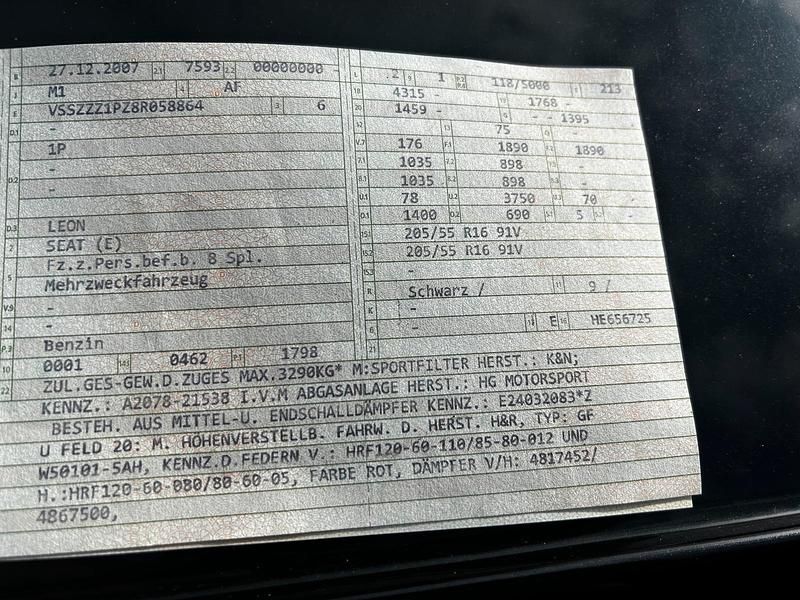 B 27.12.2007 2.1 7593 2.2 00000000 -
J M1 4 AF
E VSSZZZ1PZ8R058864 3 6
D.1 -
1P
D.2 -
-
-
D.3 LEON
2 SEAT (E)
5 Fz.z.Pers.bef.b. 8 Spl.
Mehrzweckfahrzeug
V.9 -
14 -
P.3 Benzin
10 0001 14.1 0462 P.1 1798
L .2 9 1 P.2 P.4 118/5000 T 213
18 4315 - 19 1768 -
20 1459 - G - - 1395
12 - 13 75 Q -
V.7 176 F.1 1890 F.2 1890
7.1 1035 7.2 898 7.3 -
8.1 1035 8.2 898 8.3 -
U.1 78 U.2 3750 U.3 70
O.1 1400 O.2 690 S.1 5 S.2 -
15.1 205/55 R16 91V
15.2 205/55 R16 91V
15.3 -
R Schwarz / 11 9 /
K -
6 - 17 E 16 HE656725
21
22 ZUL.GES-GEW.D.ZUGES MAX.3290KG* M:SPORTFILTER HERST.: K&N;
KENNZ.: A2078-21538 I.V.M ABGASANLAGE HERST.: HG MOTORSPORT
BESTEH. AUS MITTEL-U. ENDSCHALLDÄMPFER KENNZ.: E24032083*2
U FELD 20: M. HÖHENVERSTELLB. FAHRW. D. HERST. H&R, TYP: GF
W50101-5AH, KENNZ.D.FEDERN V.: HRF120-60-110/85-80-012 UND
H.:HRF120-60-080/80-60-05, FARBE ROT, DÄMPFER V/H: 4817452/
4867500,